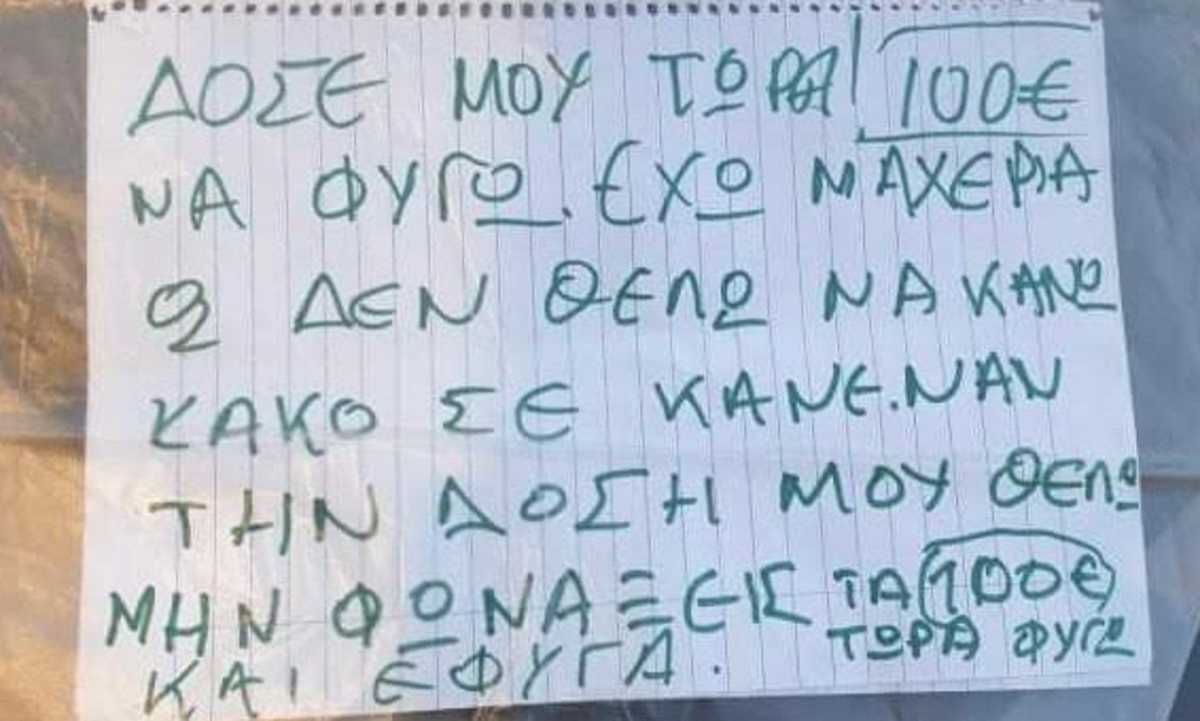 ΔΟΣΕ ΜΟΥ ΤΩΡΑ! 100€
ΝΑ ΦΥΓΩ. ΕΧΩ ΜΑΧΕΡΙΑ
ΔΕΝ ΘΕΛΩ ΝΑ ΚΑΝΩ
ΚΑΚΟ ΣΕ ΚΑΝΕ.ΝΑΝ
ΤΗΝ ΔΟΣΗ ΜΟΥ ΘΕΛΩ
ΜΗΝ ΦΩΝΑΞΕΙΣ ΤΑ 100€
ΤΩΡΑ ΦΥΓΩ
ΚΑΙ ΕΦΥΓΑ.